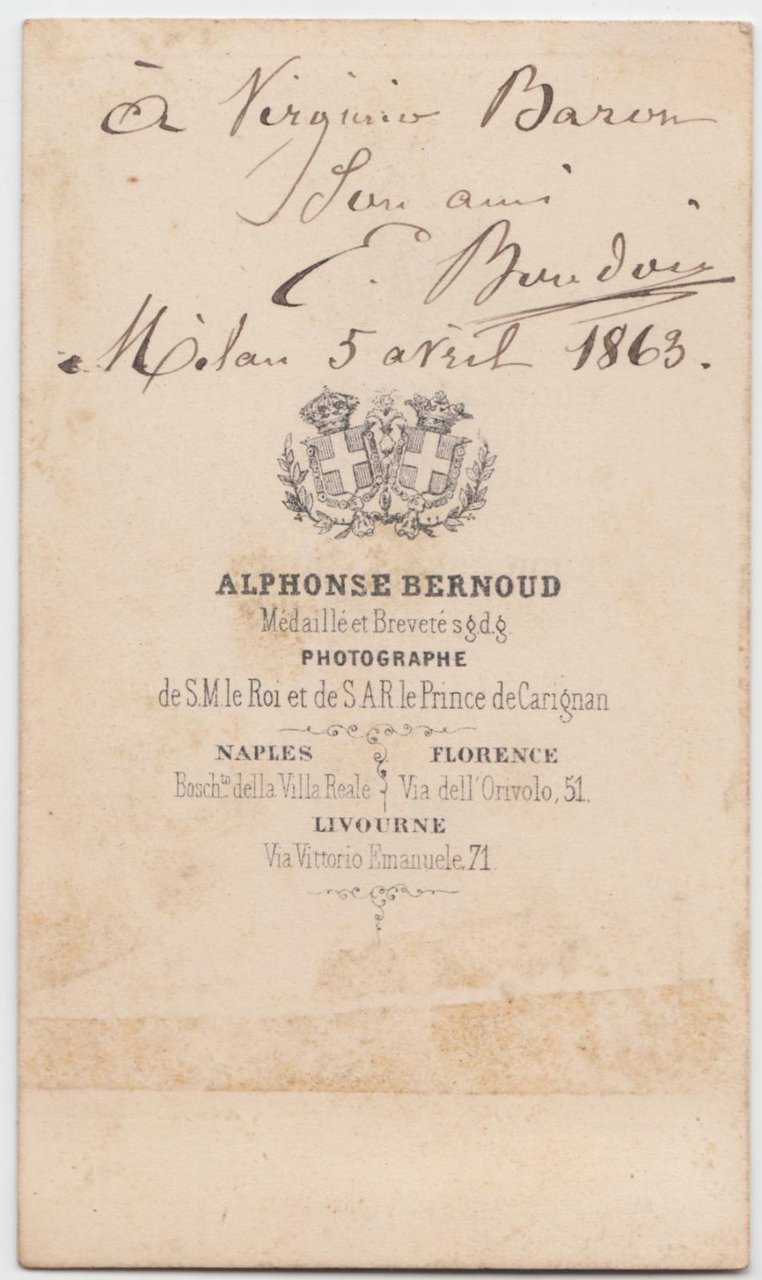 à Virginio Baron
Son ami
E. Boudoin
Milan 5 avril 1863.
ALPHONSE BERNOUD
Médaillé et Breveté s.g.d.g
PHOTOGRAPHE
de S.M. le Roi et de S.A.R. le Prince de Carignan
NAPLES
Bosch.to della Villa Reale
FLORENCE
Via dell'Orivolo, 51.
LIVOURNE
Via Vittorio Emanuele. 71.